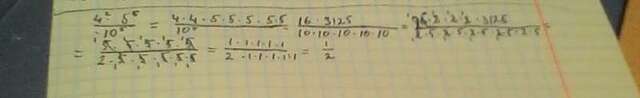 4² · 5⁵ / 10⁵ = 4·4·5·5·5·5·5 / 10⁵ = 16·3125 / 10·10·10·10·10 = 2·2·2·2·3125 / 2·5·2·5·2·5·2·5·2·5 =
= 5·5·5·5·5 / 2·5·5·5·5·5 = 1·1·1·1·1 / 2·1·1·1·1·1 = 1/2